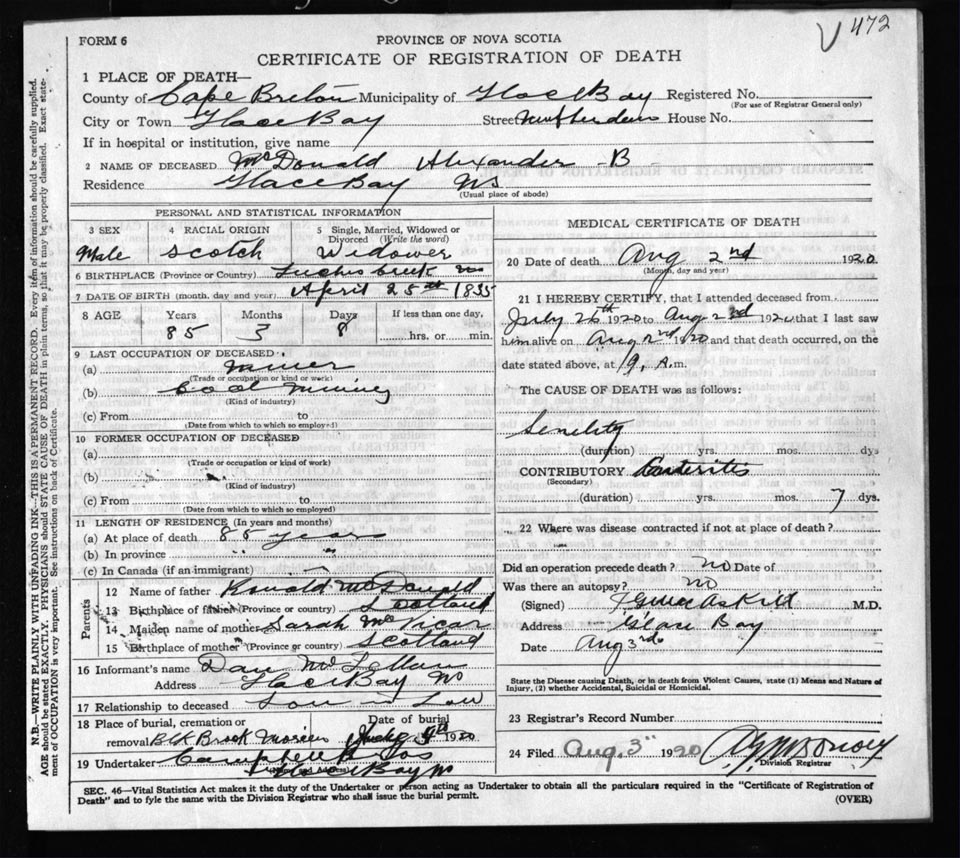 V 472
FORM 6
PROVINCE OF NOVA SCOTIA
CERTIFICATE OF REGISTRATION OF DEATH
1 PLACE OF DEATH—
County of Cape Breton Municipality of Glace Bay Registered No.
(For use of Registrar General only)
City or Town Glace Bay Street House No.
If in hospital or institution, give name
2 NAME OF DECEASED McDonald Alexander B
Residence Glace Bay NS
(Usual place of abode)
PERSONAL AND STATISTICAL INFORMATION
3 SEX 4 RACIAL ORIGIN 5 Single, Married, Widowed or Divorced (Write the word)
Male Scotch Widower
6 BIRTHPLACE (Province or Country)
7 DATE OF BIRTH (month, day and year) April 25th 1835
8 AGE Years Months Days If less than one day,
85 3 8 hrs. or min.
9 LAST OCCUPATION OF DECEASED
(a) Miner
(Trade or occupation or kind or work)
(b) Coal Mining
(Kind of industry)
(c) From to
(Date from which to which so employed)
10 FORMER OCCUPATION OF DECEASED
(a)
(Trade or occupation or kind of work)
(b)
(Kind of industry)
(c) From to
(Date from which to which so employed)
11 LENGTH OF RESIDENCE (In years and months)
(a) At place of death 85 years
(b) In province " "
(c) In Canada (if an immigrant)
Parents
12 Name of father Ronald McDonald
13 Birthplace of father (Province or country) Scotland
14 Maiden name of mother Sarah McVicar
15 Birthplace of mother (Province or country) Scotland
16 Informant's name Dan McLellan
Address Glace Bay NS
17 Relationship to deceased Son in Law
18 Place of burial, cremation or Date of burial
removal Blk Brook 1920
19 Undertaker Campbell
Glace Bay NS
MEDICAL CERTIFICATE OF DEATH
20 Date of death Aug 2nd 1920
(Month, day and year)
21 I HEREBY CERTIFY, that I attended deceased from
July 26th 1920 to Aug 2nd 1920 that I last saw
him alive on Aug 2nd 1920 and that death occurred, on the
date stated above, at 9, A.m.
The CAUSE OF DEATH was as follows:
Senility
(duration) yrs. mos. dys
CONTRIBUTORY Enteritis
(Secondary)
(duration) yrs. mos. 7 dys.
22 Where was disease contracted if not at place of death?
Did an operation precede death? no Date of
Was there an autopsy? no
(Signed) M.D.
Address Glace Bay
Date Aug 3rd
State the Disease causing Death, or in death from Violent Causes, state (1) Means and Nature of
Injury, (2) whether Accidental, Suicidal or Homicidal.
23 Registrar's Record Number
24 Filed Aug. 3" 1920
Division Registrar
SEC. 46—Vital Statistics Act makes it the duty of the Undertaker or person acting as Undertaker to obtain all the particulars required in the "Certificate of Registration of
Death" and to fyle the same with the Division Registrar who shall issue the burial permit.
(OVER)
N.B.—WRITE PLAINLY WITH UNFADING INK—THIS IS A PERMANENT RECORD. Every item of information should be carefully supplied.
AGE should be stated EXACTLY. PHYSICIANS should STATE CAUSE OF DEATH in plain terms, so that it may be properly classified. Exact state-
ment of OCCUPATION is very important. See instructions on back of Certificate.